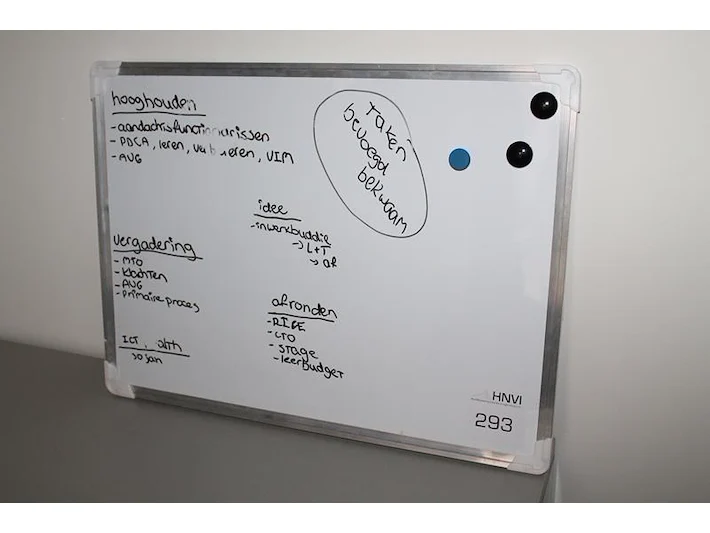 hooghouden
- aandachtsfunctionarissen
- PDCA, leren, verbeteren, VIM
- AVG
Taken
bevoegd
bekwaam
idee
- inwerkbuddie
→ L+T
→ of
vergadering
- MTO
- klachten
- AVG
- primaire proces
afronden
- RI&E
- CTO
- stage
- leerbudget
ICT
HNVI
293